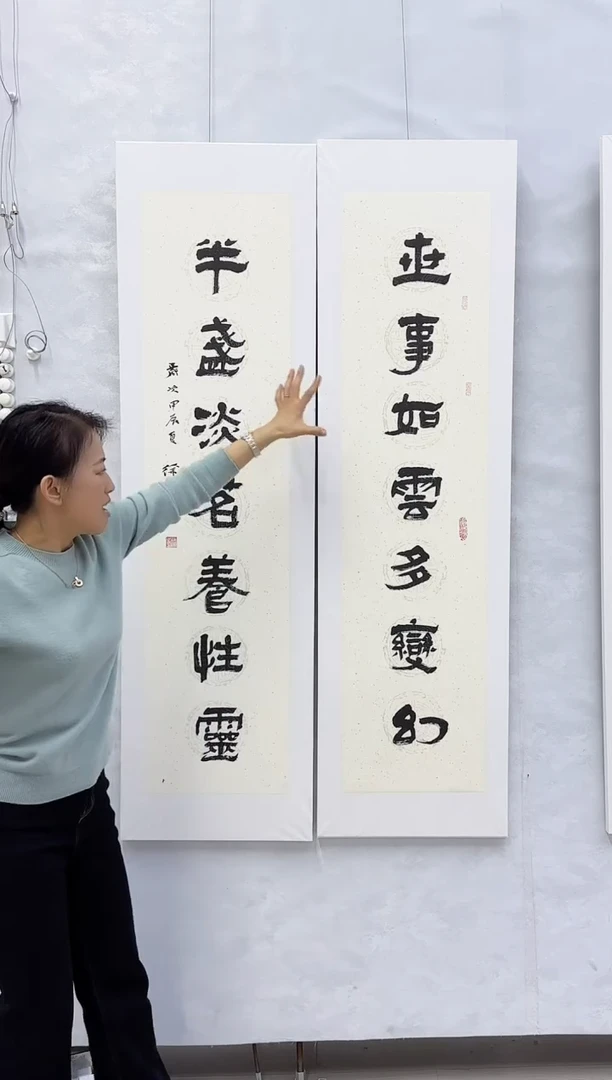 世事如雲多變幻
半盞淡茗養性靈
歲次甲辰夏 徐